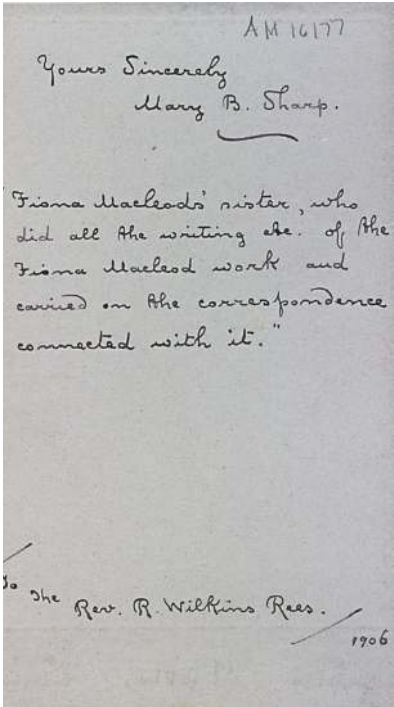 AM 16177
Yours Sincerely
Mary B. Sharp.
'Fiona Macleods' sister, who
did all the writing etc. of the
Fiona Macleod work and
carried on the correspondence
connected with it."
To The
Rev. R. Wilkins Rees.
1906